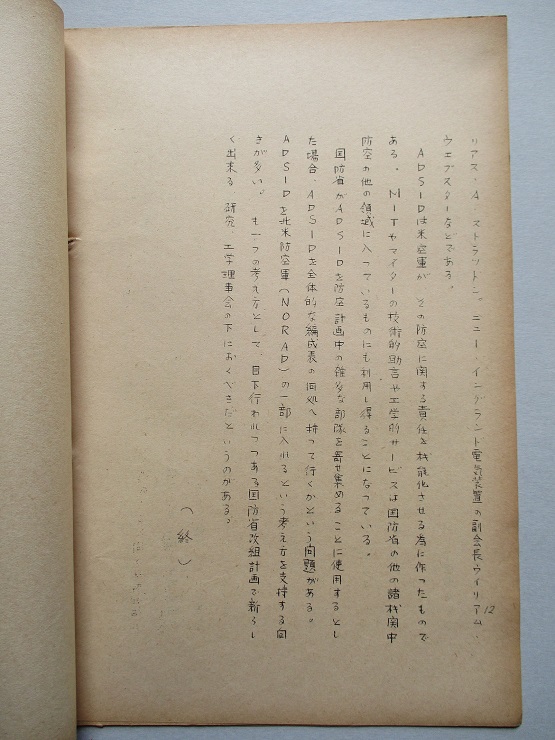 リアス・A・ストラットン。ニュー イングラント電気装置の副会長ウイリアム・
ウエブスターなどである。
ADSIDは米空軍が、その防空に関する責任を機能化させる為に作ったもので
ある。MITやマイターの技術的助言や工学的サービスは国防省の他の諸機関中
防空の他の領域に入っているものにも利用し得ることになっている。
国防省がADSIDを防空計画中の雑多な部隊を寄せ集めることに使用するとし
た場合、ADSIDを全体的な編成表の何処へ持って行くかという問題がある。
ADSIDを北米防空軍(NORAD)の一部に入れるという考え方を支持する向
きが多い。も一つの考え方として、目下行われつつある国防省改組計画で新らし
く出来る 研究、工学理事会の下におくべきだというのがある。
(終)
12